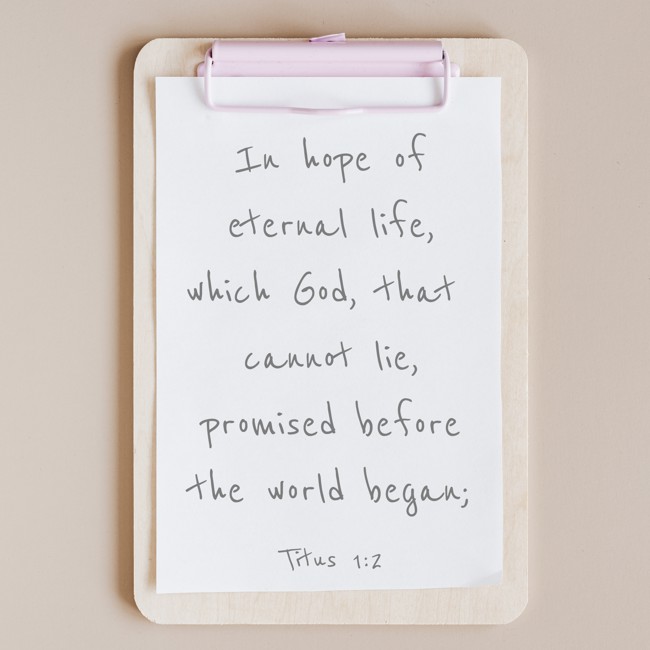 In hope of
eternal life,
which God, that
cannot lie,
promised before
the world began;
Titus 1:2